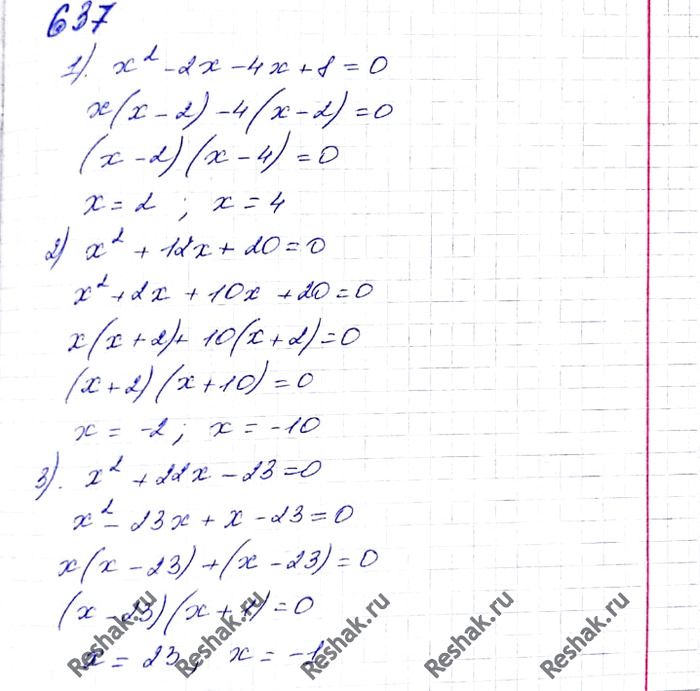 637
1). x² - 2x - 4x + 8 = 0
x(x - 2) - 4(x - 2) = 0
(x - 2)(x - 4) = 0
x = 2 ; x = 4
2) x² + 12x + 20 = 0
x² + 2x + 10x + 20 = 0
x(x + 2) + 10(x + 2) = 0
(x + 2)(x + 10) = 0
x = -2 ; x = -10
3). x² + 22x - 23 = 0
x² - 23x + x - 23 = 0
x(x - 23) + (x - 23) = 0
(x - 23)(x + 1) = 0
x = 23 ; x = -1
Reshak.ru Reshak.ru Reshak.ru Reshak.ru Reshak.ru